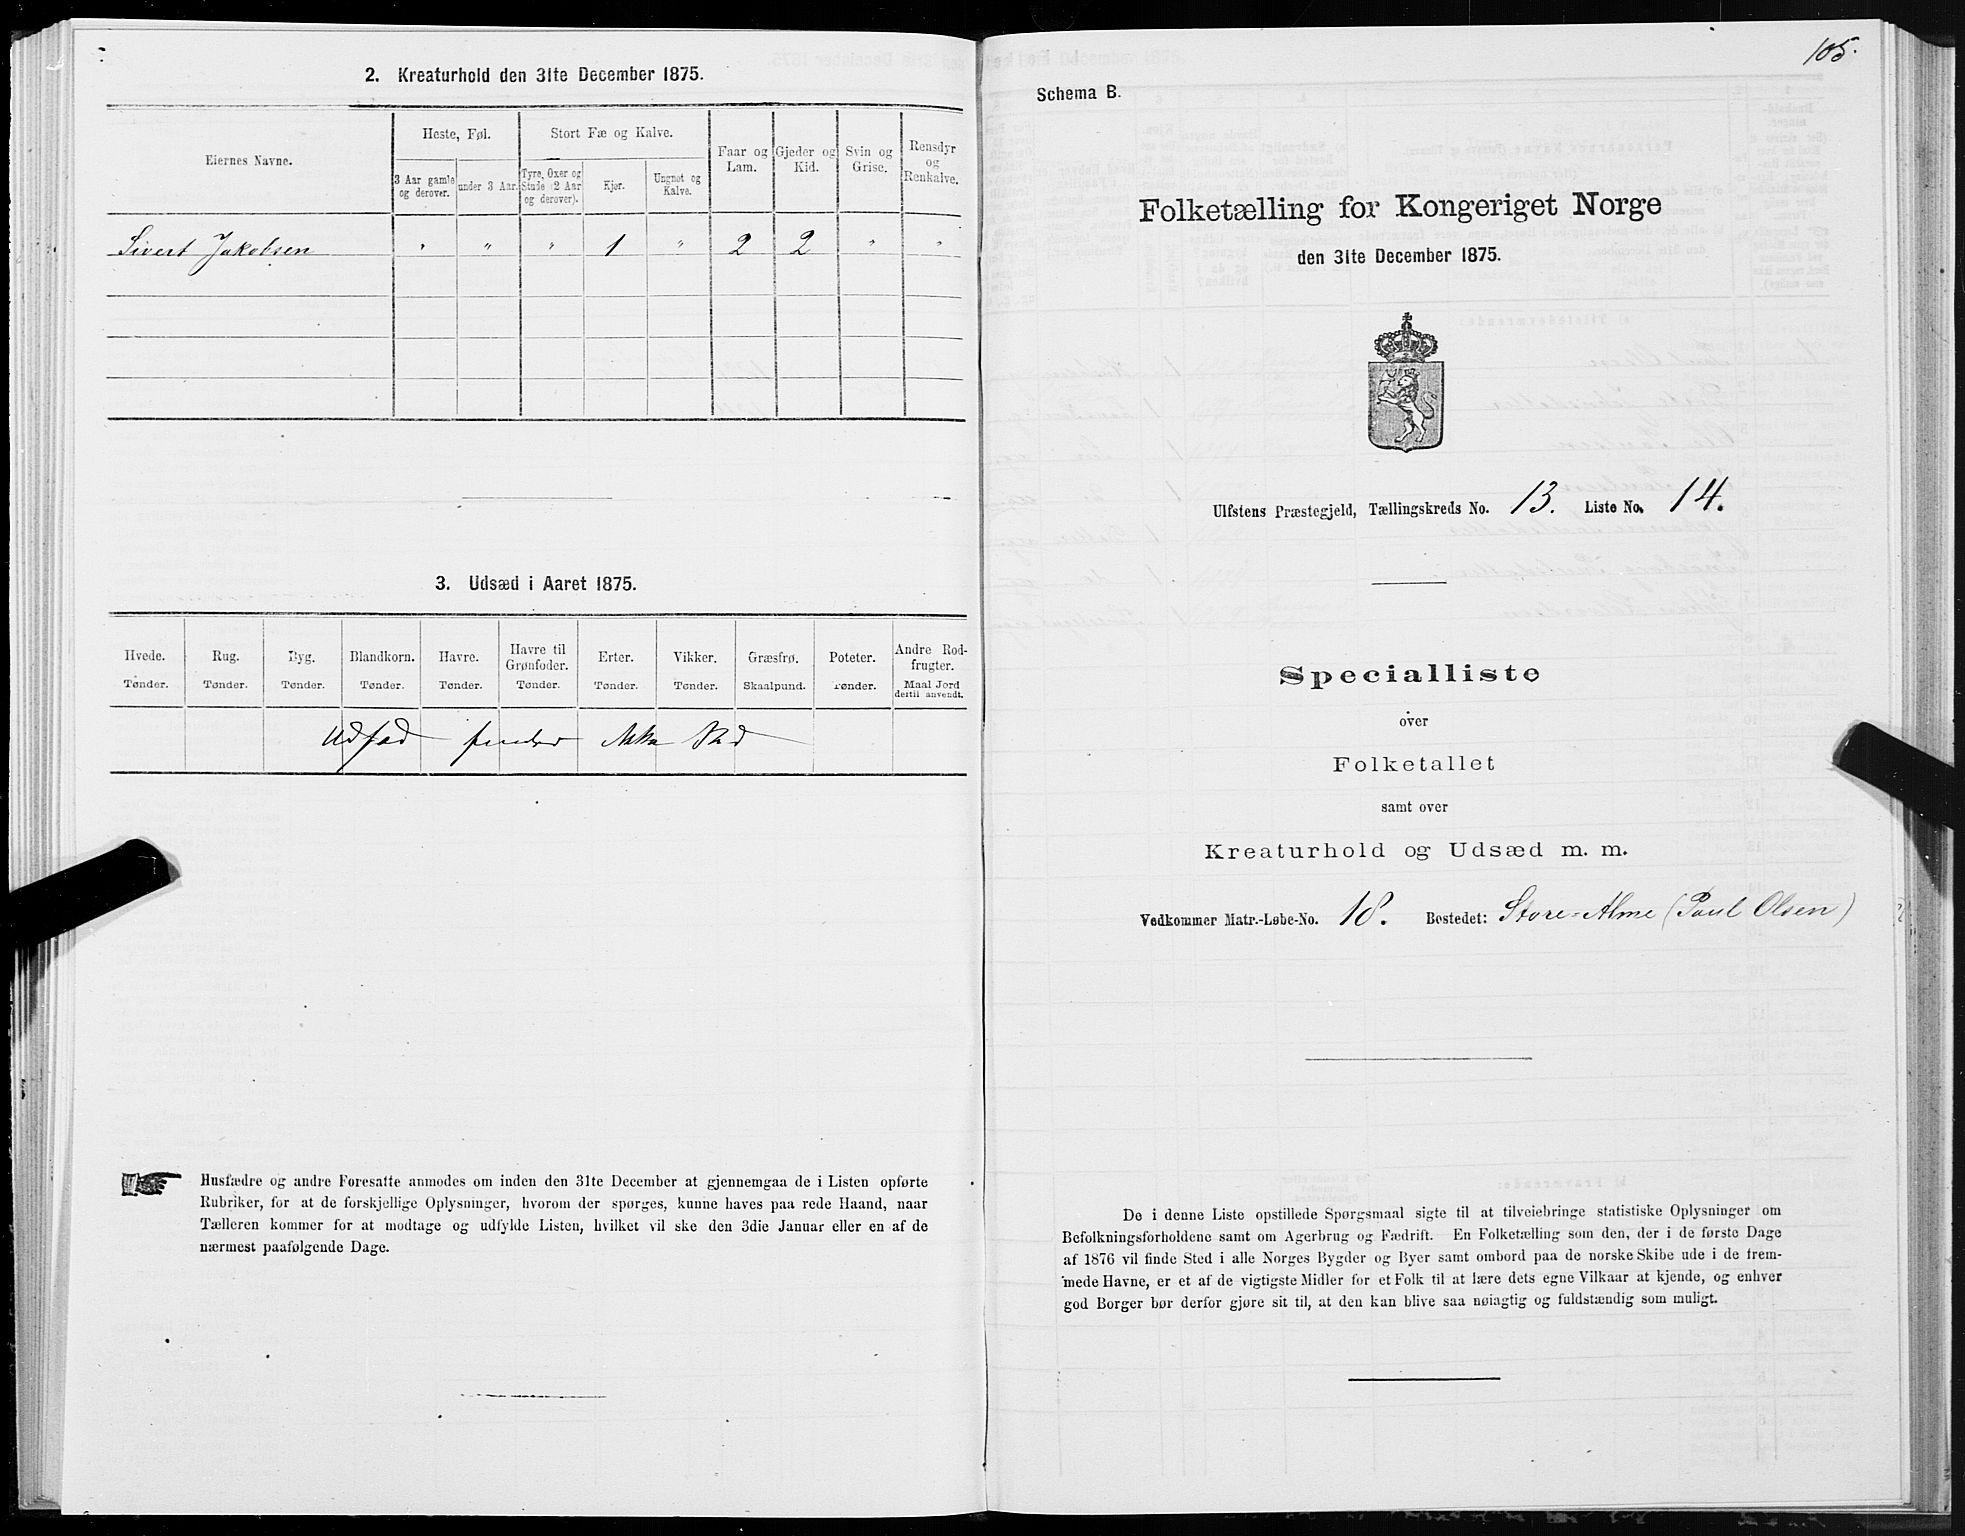 2. Kreaturhold den 31te December 1875.
Eiernes Navne.
Heste, Føl.
Stort Fæ og Kalve.
Faar og Lam.
Gjeder og Kid.
Svin og Grise.
Rensdyr og Renkalve.
3 Aar gamle og derover.
under 3 Aar.
Tyre, Oxer og Stude (2 Aar og derover).
Kjør.
Ungnøt og Kalve.
Sivert Jakobsen " " " 1 " 2 2 " "
3. Udsæd i Aaret 1875.
Hvede. Tønder.
Rug. Tønder.
Byg. Tønder.
Blandkorn. Tønder.
Havre. Tønder.
Havre til Grønfoder. Tønder.
Erter. Tønder.
Vikker. Tønder.
Græsfrø. Skaalpund.
Poteter. Tønder.
Andre Rodfrugter. Maal Jord dertil anvendt.
Udsæd finder ikke Sted
Husfædre og andre Foresatte anmodes om inden den 31te December at gjennemgaa de i Listen opførte
Rubriker, for at de forskjellige Oplysninger, hvorom der spørges, kunne haves paa rede Haand, naar
Tælleren kommer for at modtage og udfylde Listen, hvilket vil ske den 3die Januar eller en af de
nærmest paafølgende Dage.
105.
Schema B.
Folketælling for Kongeriget Norge
den 31te December 1875.
Ulfstens Præstegjeld, Tællingskreds No. 13. Liste No. 14.
Specialliste
over
Folketallet
samt over
Kreaturhold og Udsæd m. m.
Vedkommer Matr.-Løbe-No. 18. Bostedet: Store-Alme (Paul Olsen)
De i denne Liste opstillede Spørgsmaal sigte til at tilveiebringe statistiske Oplysninger om
Befolkningsforholdene samt om Agerbrug og Fædrift. En Folketælling som den, der i de første Dage
af 1876 vil finde Sted i alle Norges Bygder og Byer samt ombord paa de norske Skibe ude i de frem-
mede Havne, er et af de vigtigste Midler for et Folk til at lære dets egne Vilkaar at kjende, og enhver
god Borger bør derfor gjøre sit til, at den kan blive saa nøiagtig og fuldstændig som muligt.